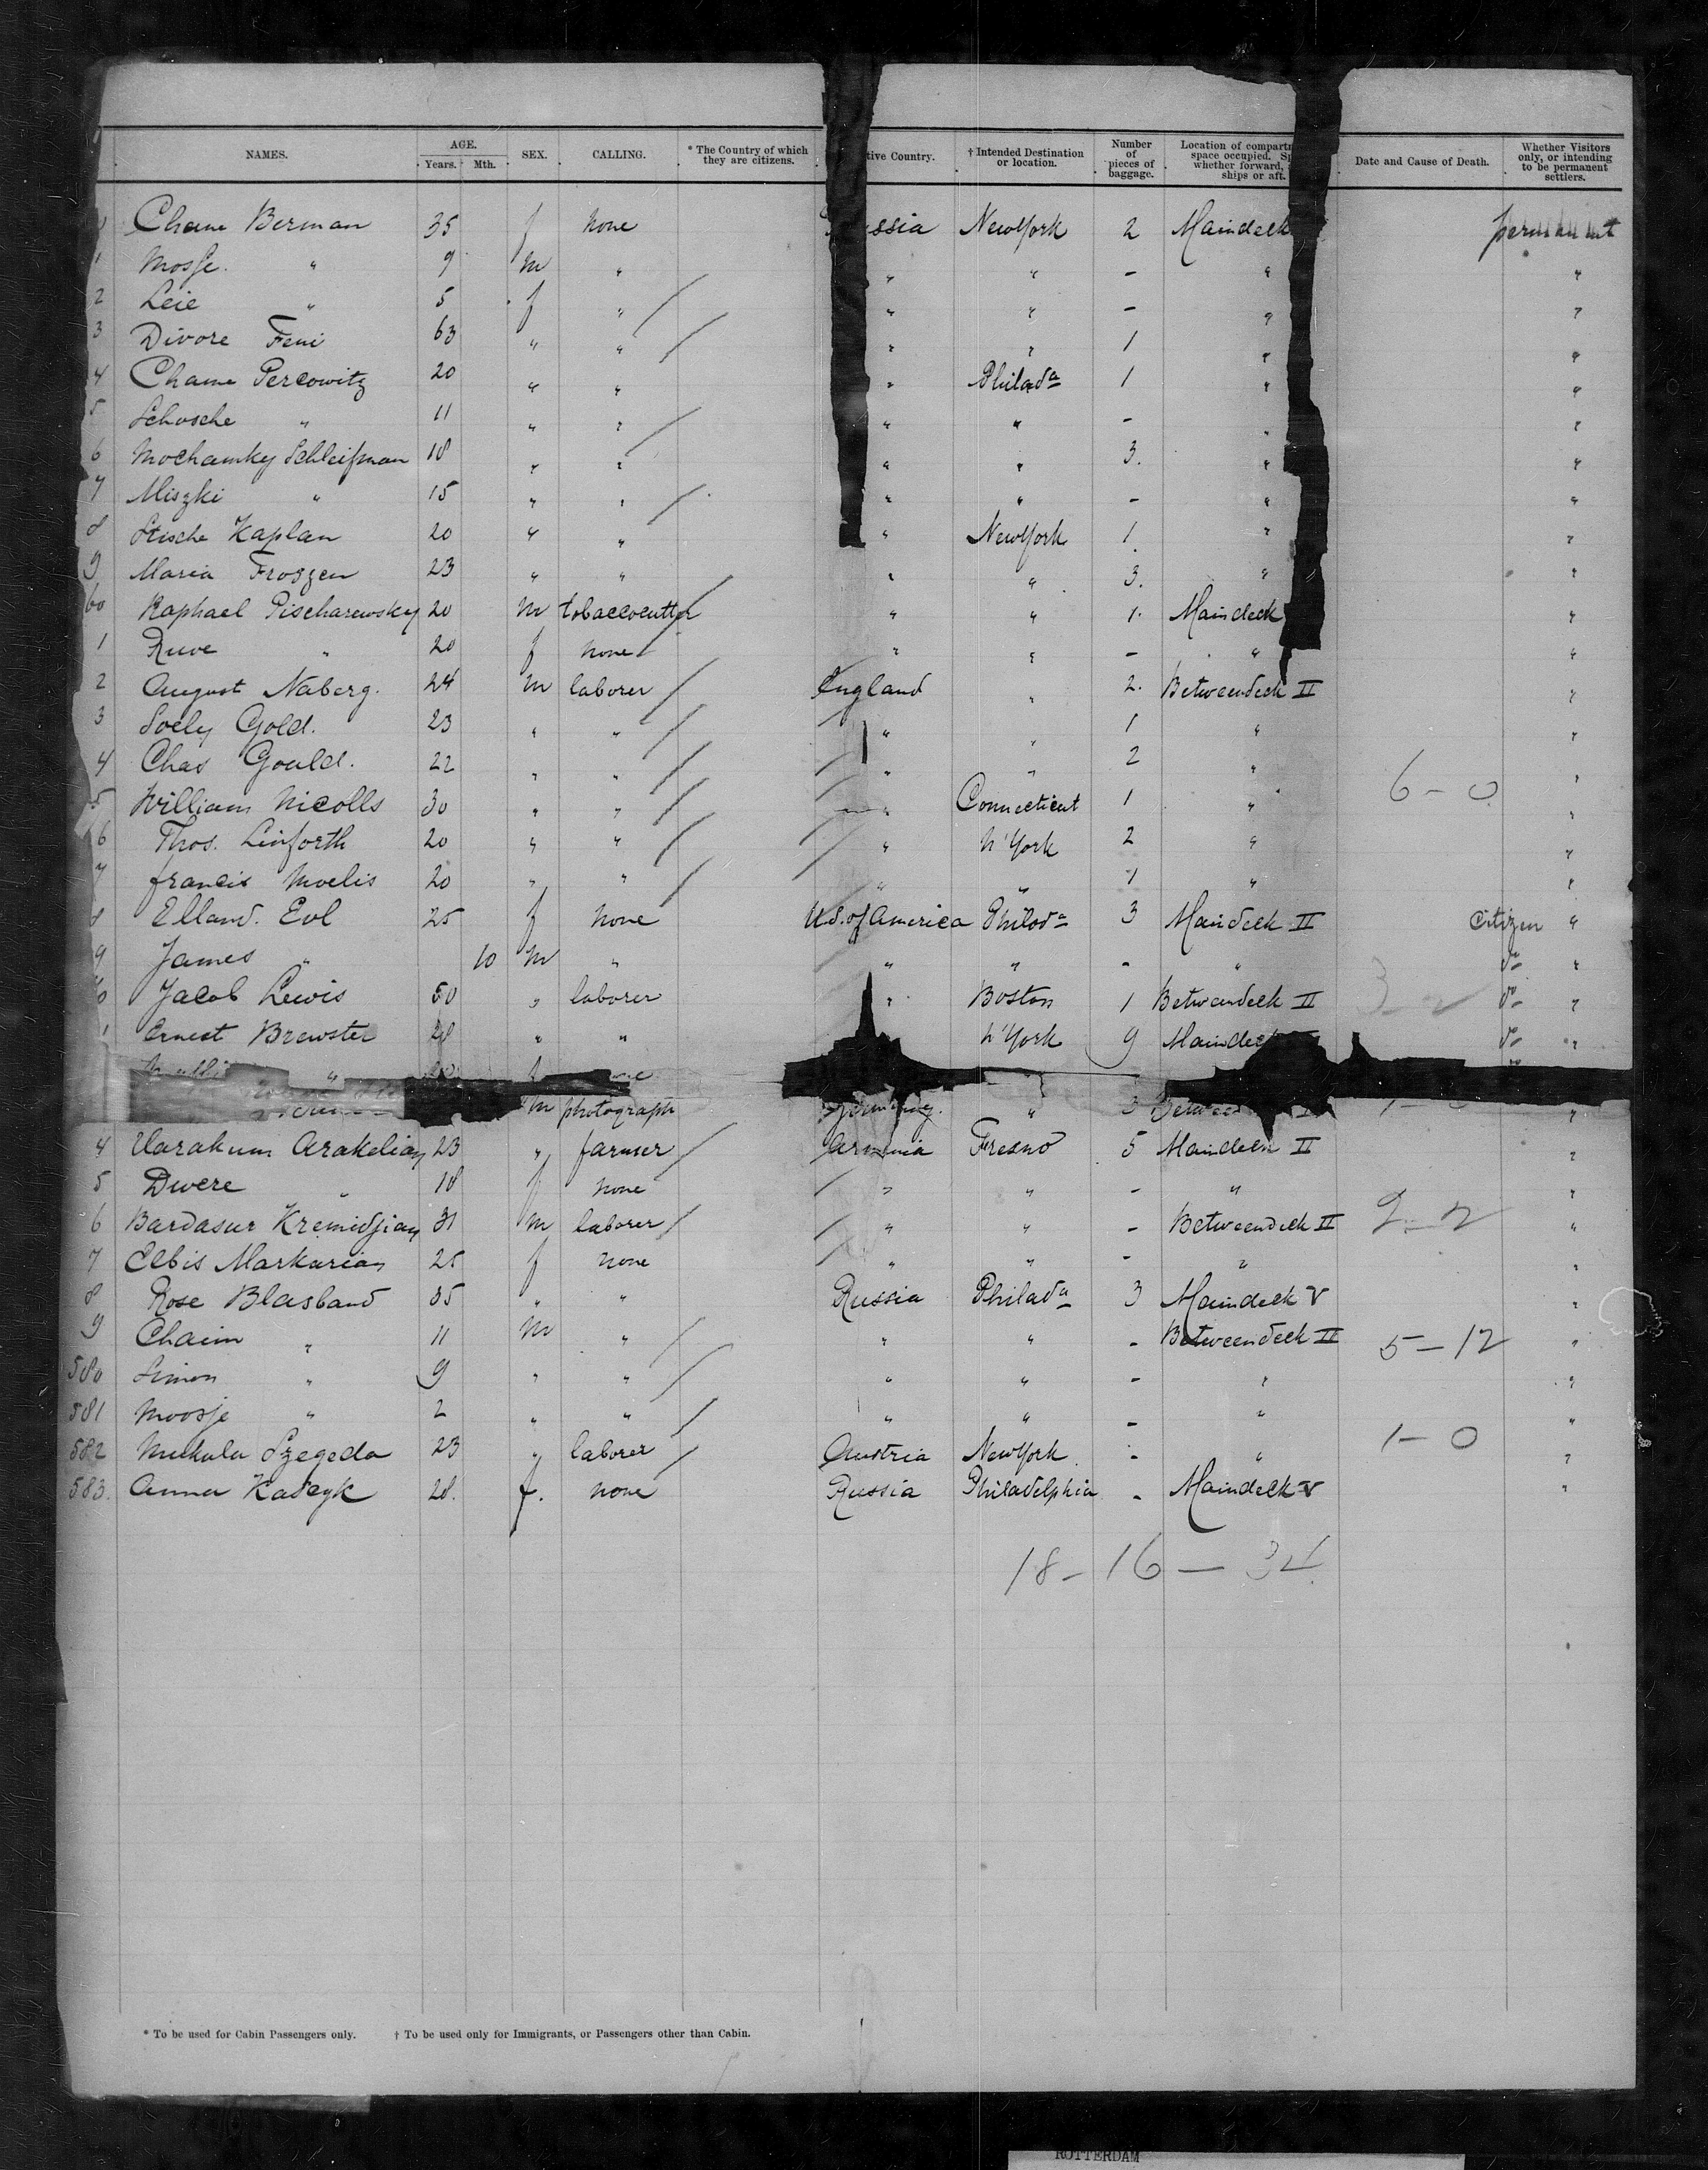 NAMES. AGE. Years. Mth. SEX. CALLING. * The Country of which they are citizens. tive Country. † Intended Destination or location. Number of pieces of baggage. Location of compartm space occupied. Sp whether forward, ships or aft. Date and Cause of Death. Whether Visitors only, or intending to be permanent settlers.
Chane Berman 35 f none ssia NewYork 2 Maindeck permanent
1 Mosje " 9 m " " " - " "
2 Leie " 5 f " " " - " "
3 Divore Feni 63 " " " " 1 " "
4 Chane Percowitz 20 " " " Philada 1 " "
5 Schosche " 11 " " " " - " "
6 Mochamky Schleifman 18 " " " " 3. " "
7 Miszki " 15 " " " " - " "
8 Stische Kaplan 20 " " " NewYork 1. " "
9 Maria Froszen 23 " " " " 3. " "
60 Raphael Pischarewsky 20 m tobaccocutter " " 1. Maindeck "
1 Ruwe " 20 f none " " - " "
2 August Naberg. 24 m laborer England " 2. Betweendeck II "
3 Soely Gold. 23 " " " " 1 " "
4 Chas Gould. 22 " " " " 2 " "
6-0
5 William Nicolls 30 " " " Connecticut 1 " "
6 Thos. Linforth 20 " " " N'York 2 " "
7 Francis Moelis 20 " " " " 1 " "
8 Elland. Evl 25 f none U.S. of America Philada 3 Maindeck II Citizen "
9 James " 10 m " " " - " do "
70 Jacob Lewis 50 " laborer " Boston 1 Betweendeck II 3-2 do "
1 Ernest Brewster 28 " " N'York 9 Maindeck do "
"
m photograph Germany. " 3 Between "
4 Varakum Arakelian 23 " farmer Armenia Fresno 5 Maindeck II "
5 Dwere " 18 f none " " - " "
6 Bardasur Kremidjian 31 m laborer " " - Betweendeck II 2-2 "
7 Elbis Markarian 25 f none " " - " "
8 Rose Blasband 35 " " Russia Philada 3 Maindeck V "
9 Chaim " 11 m " " " - Betweendeck II 5-12 "
580 Simon " 9 " " " " - " "
581 Moosje " 2 " " " " - " "
582 Mukula Szegeda 23 " laborer Austria NewYork - " 1-0 "
583. Anna Kadcyk 28. f. none Russia Philadelphia - Maindeck V "
18-16-34
* To be used for Cabin Passengers only. † To be used only for Immigrants, or Passengers other than Cabin.
ROTTERDAM